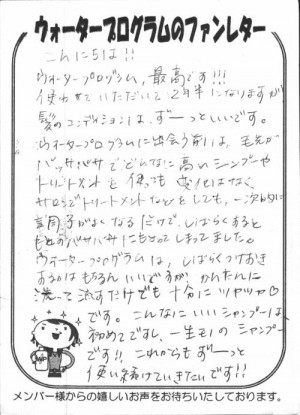 ウォータープログラムのファンレター
こんにちは!!
ウォータープログラム、最高です!!!
使わせていただいて2年半になりますが
髪のコンディションは、ずーっといいです。
ウォータープログラムに出会う前は、毛先が
バッサバサで、どんなに高いシャンプーや
トリートメントを使っても変化はなく、
サロンでトリートメントなどをしても、一次的に
調子がよくなるだけで、しばらくすると
もとのバサバサにもどってしまってました。
ウォータープログラムは、しばらくつけおき
するのはもちろんいいですが、かんたんに
洗って流すだけでも十分にツヤツヤ♡
です。こんなにいいシャンプーは
初めてですし、一生モノのシャンプー
です!! これからもずーっと
使い続けていきたいです!!
メンバー様からの嬉しいお声をお待ちいたしております。